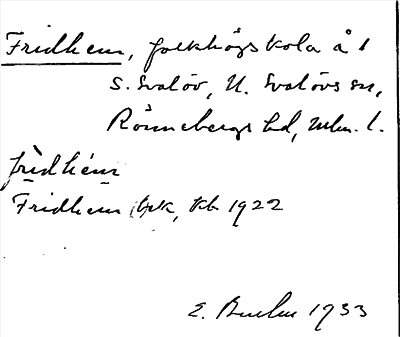 Fridhem, folkhögskola å 1
S. Svalöv, N. Svalövs sn,
Rönnebergs hd, Mlm. l.
fridhem
Fridhem Kb 1922
E. 1933